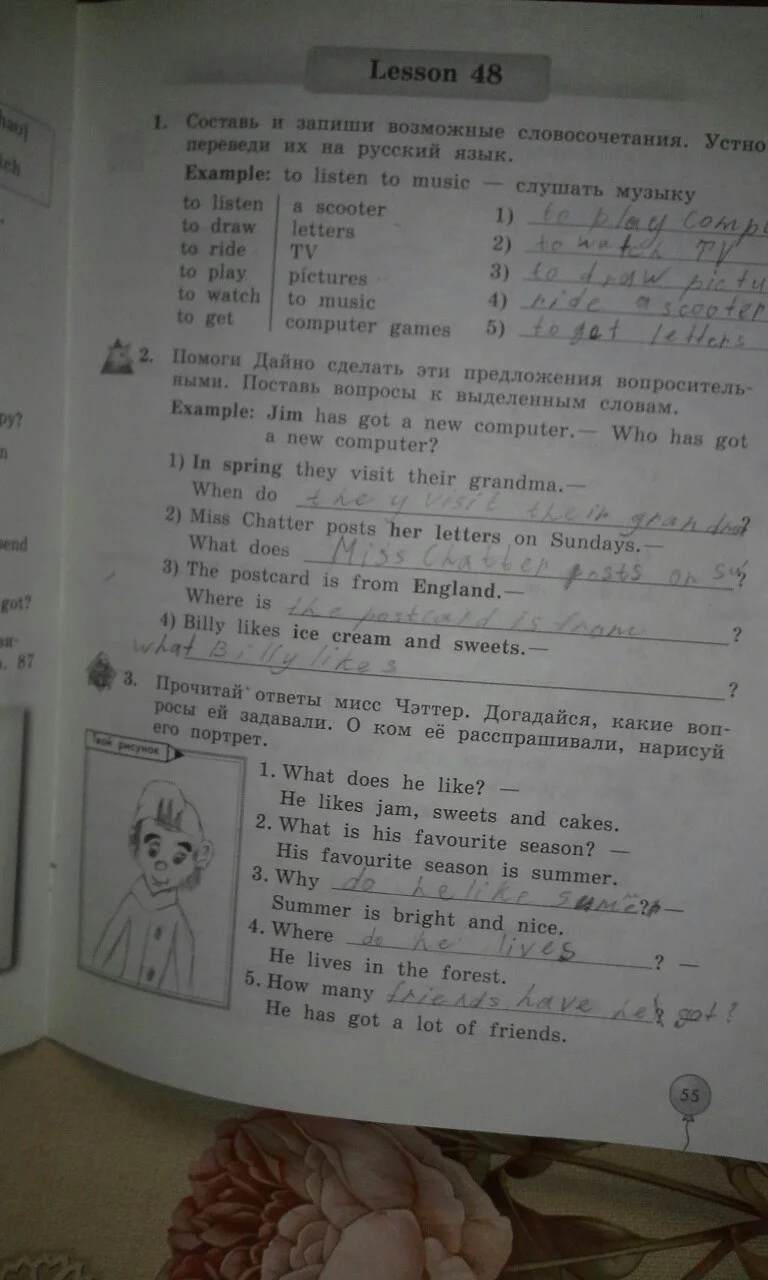 hau]
ich
Lesson 48
1. Составь и запиши возможные словосочетания. Устно
переведи их на русский язык.
Example: to listen to music — слушать музыку
to listen a scooter 1) to play comp
to draw letters 2) to watch TV
to ride TV 3) to draw pictu
to play pictures 4) ride a scooter
to watch to music 5) to get letters
to get computer games
2. Помоги Дайно сделать эти предложения вопроситель-
ными. Поставь вопросы к выделенным словам.
Example: Jim has got a new computer.— Who has got
a new computer?
1) In spring they visit their grandma.—
When do they visit their grandma?
2) Miss Chatter posts her letters on Sundays.—
What does Miss Chatter posts on su?
3) The postcard is from England.—
Where is the postcard is from ?
4) Billy likes ice cream and sweets.—
what Billy likes ?
3. Прочитай ответы мисс Чэттер. Догадайся, какие воп-
росы ей задавали. О ком её расспрашивали, нарисуй
его портрет.
Твой рисунок
1. What does he like? —
He likes jam, sweets and cakes.
2. What is his favourite season? —
His favourite season is summer.
3. Why do he like ? —
Summer is bright and nice.
4. Where do he lives ? —
He lives in the forest.
5. How many friends have he got?
He has got a lot of friends.
55
ру?
send
got?
87